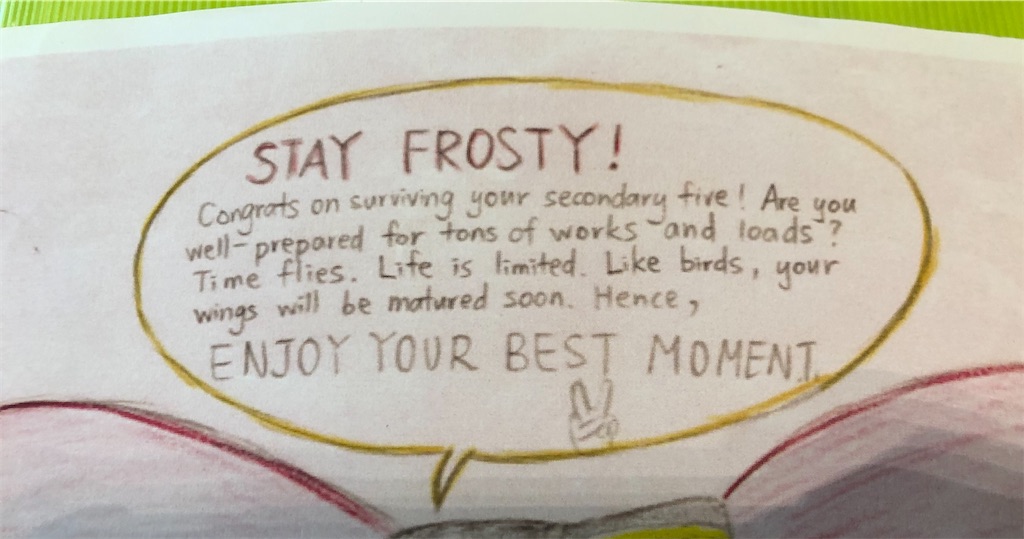 STAY FROSTY!
Congrats on surviving your secondary five! Are you
well-prepared for tons of works and loads?
Time flies. Life is limited. Like birds, your
wings will be matured soon. Hence,
ENJOY YOUR BEST MOMENT.